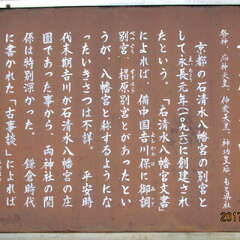 祭神 応神天皇、仲哀天皇、神功皇后
京都の石清水八幡宮の別宮と
して永長元年(一〇九六)に創建され
たという。「石清水八幡宮文書」
によれば、備中国吉川保に御調
別宮、楊原別宮とがあったとい
うが、八幡宮と称するようにな
ったいきさつは不詳。 平安時
代末期吉川が石清水八幡宮の庄
園であった事から、両神社の関
係は特別深かった。 鎌倉時代
に書かれた「古事談」によれば
2017